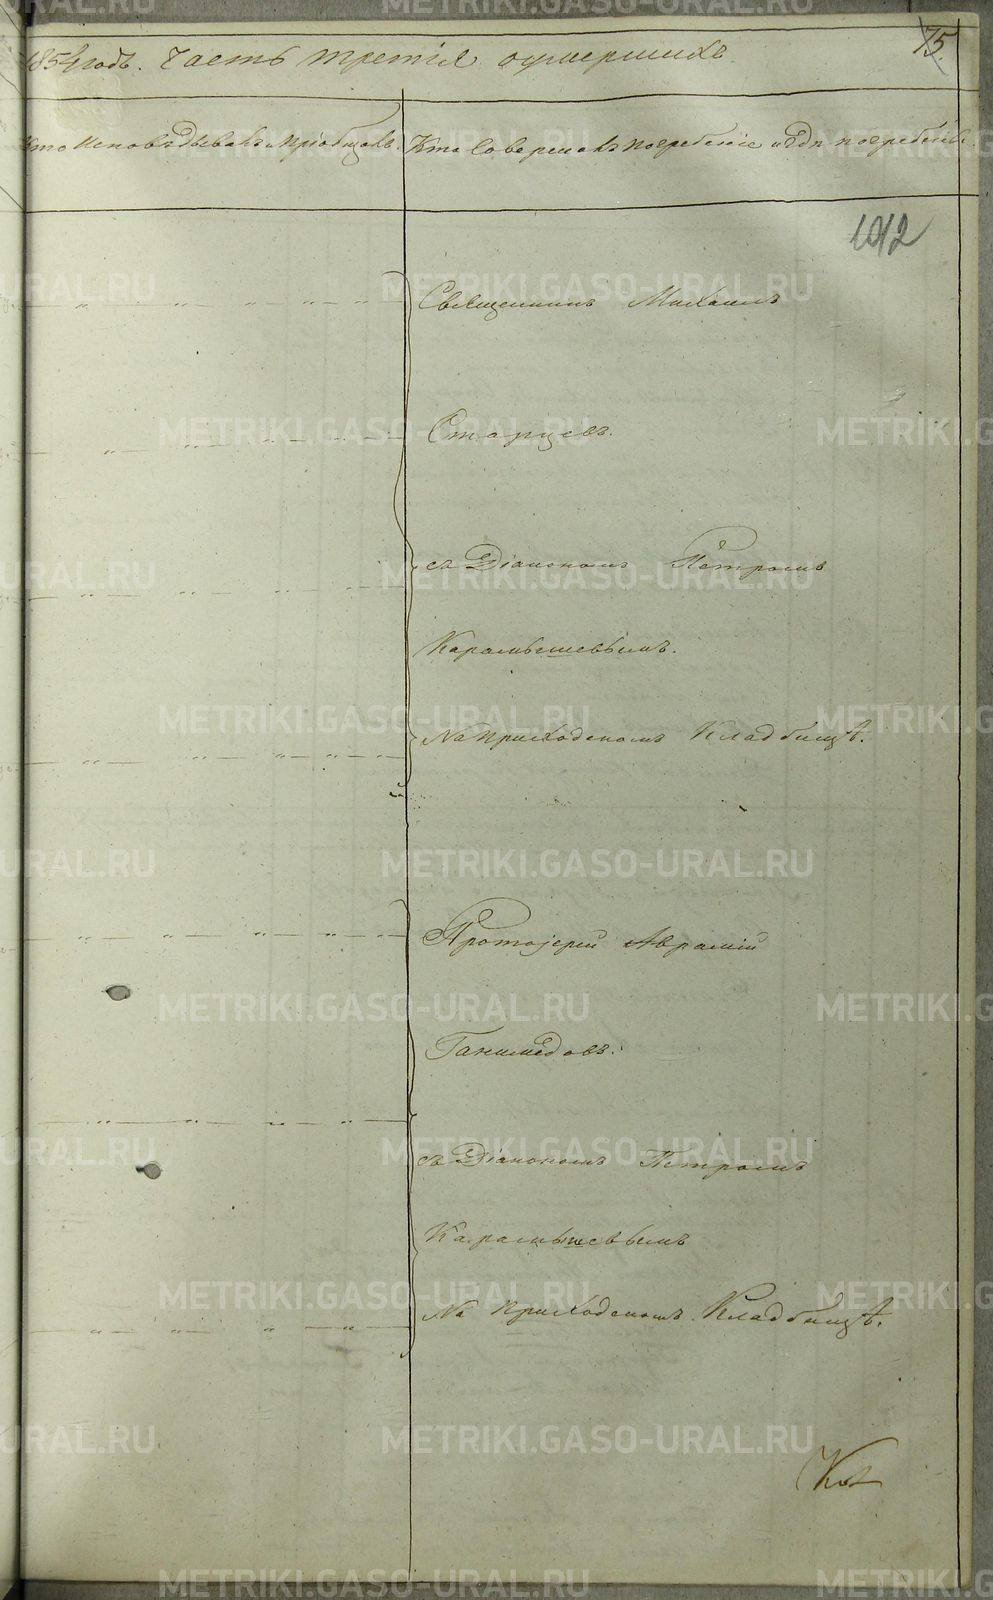 75.
1854 годъ. Часть третія оумершихъ.
Кто исповѣдывалъ и пріобщалъ. Кто совершалъ погребеніе и гдѣ погребены.
1012
Священникъ Михаилъ
Старцевъ.
съ Діакономъ Петромъ
Карамышевымъ.
На приходскомъ Кладбищѣ.
Протоіерей Аврамій
Ганимедовъ.
съ Діакономъ Петромъ
Карамышевымъ
На приходскомъ Кладбищѣ.
METRIKI.GASO-URAL.RU